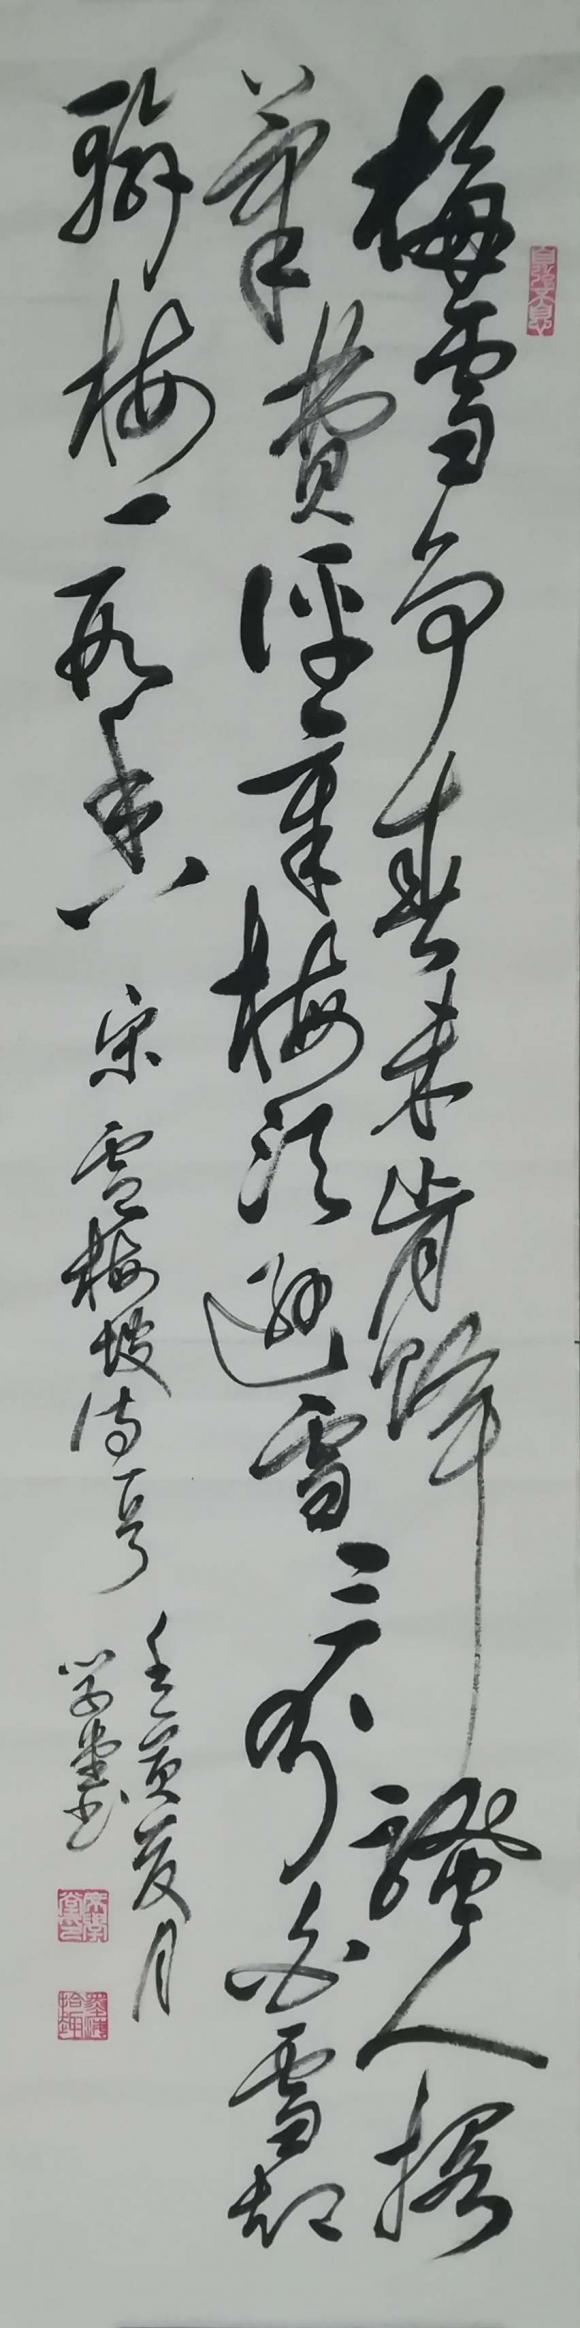 梅雪争春未肯降骚人搁
笔费评章梅须逊雪三分白雪却
输梅一段香
宋卢梅坡诗一首
壬寅夏月
学堂书
自强不息